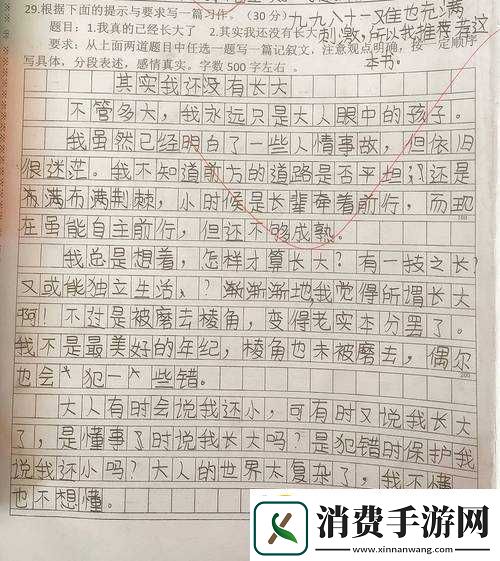 九九八十一难也充满
29.根据下面的提示与要求写一篇习作。(30分)
刺激,所以我推荐看这
题目:1.我真的已经长大了 2.其实我还没有长大
本书。
要求:从上面两道题目中任选一题写一篇记叙文,注意观点明确,按一定顺序
写具体,分段表述,感情真实。字数500字左右。
其实我还没有长大
不管多大,我永远只是大人眼中的孩子。
我虽然已经明白了一些人情事故,但依旧
很迷茫。我不知道前方的道路是否平坦,还是
布满布满荆棘,小时候是长辈牵着前行,而现
100
在虽能自主前行,但还不够成熟。
我总是想着,怎样才算长大?有一技之长?
又或能独立生活、?渐渐渐地,我觉得所谓长大
啊!不过是被磨去棱角,变得老实本分罢了。
我不是最美好的年纪,棱角也未被磨去,偶尔
200
也会犯一些错。
大人有时会说我还小,可有时又说我长大
了,是懂事了时说我长大吗?是犯错时保护我
说我还小吗?大人的世界太复杂了,我不懂
也不想懂。
消费手游网
www.xinnanwang.com